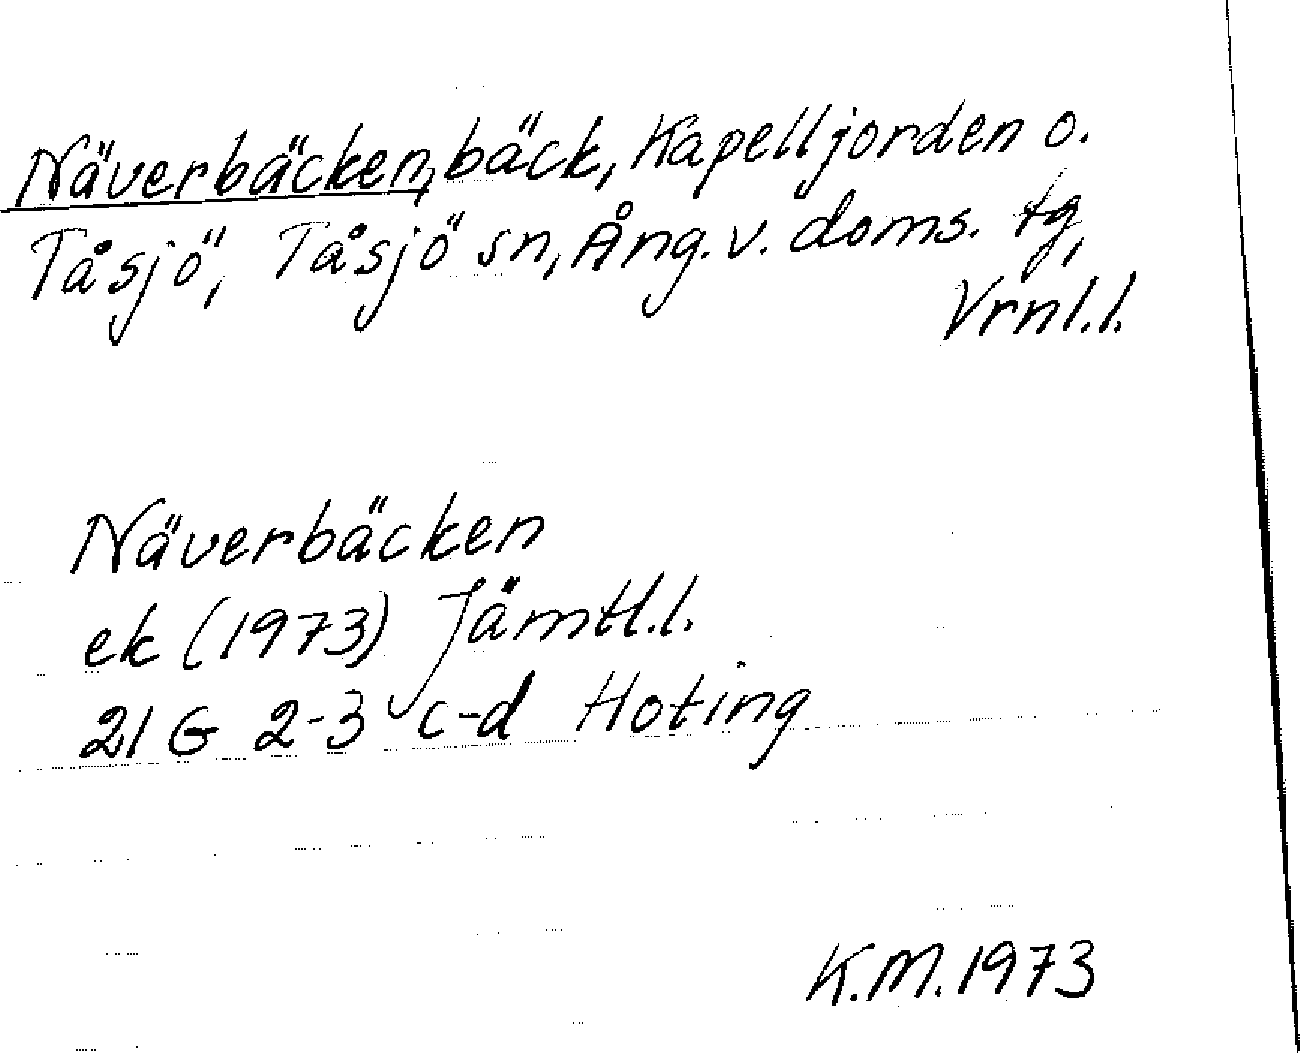 Näverbäcken, bäck, Kapelljorden o.
Tåsjö, Tåsjö sn, Ång. v. doms. tg,
Vrnl.l.
Näverbäcken
ek (1973) Jämtl.l.
21 G 2-3 c-d Hoting
K.M. 1973